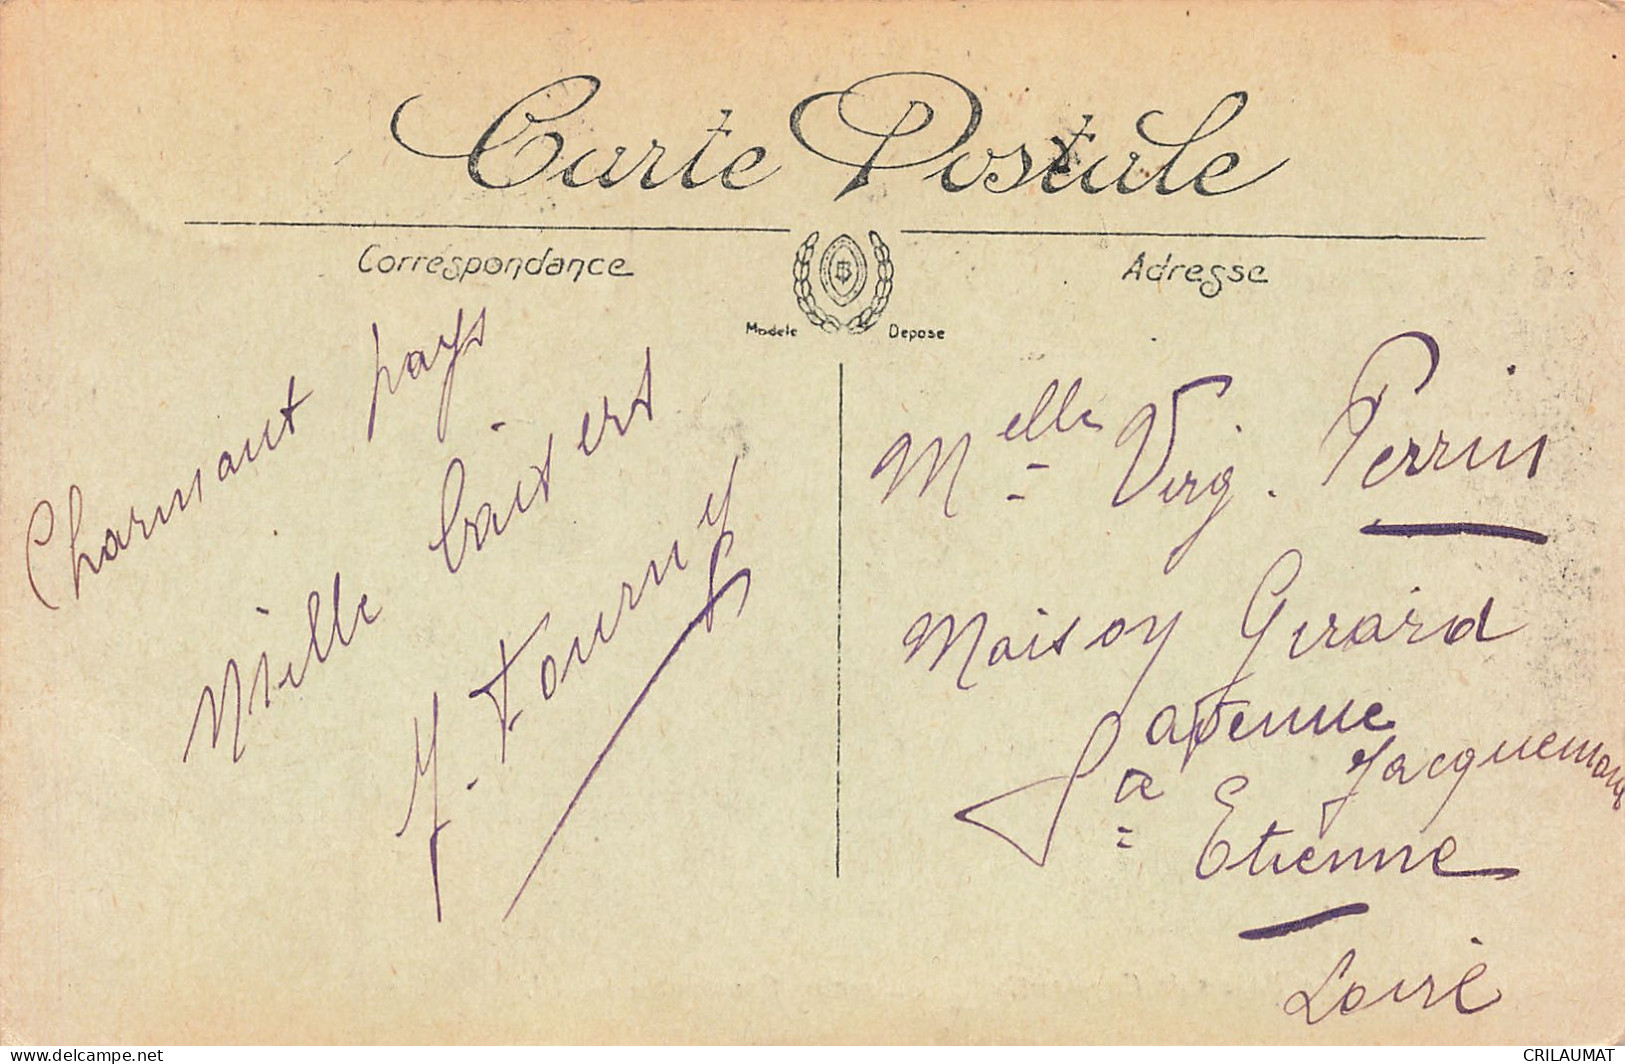 Carte Postale
Correspondance
Adresse
B
Modele Depose
Charmant pays
Mille baisers
Y. Fourny
Melle Virg. Perrin
Maison Girard
Jacquemond
Ste Etienne
Loire
delcampe.net
CRILAUMAT